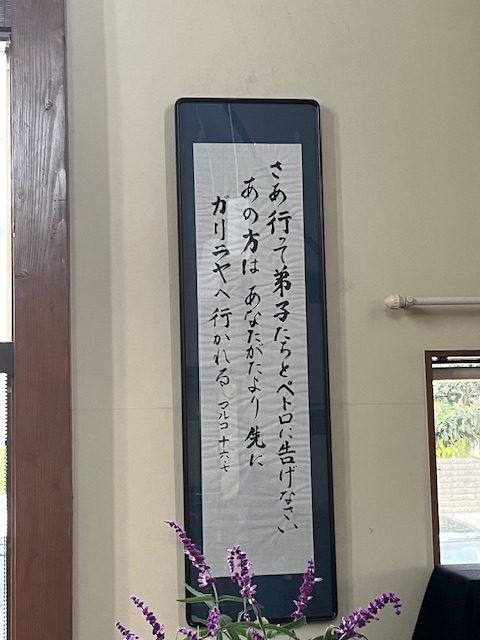 さあ行って弟子たちとペトロに告げなさい
あの方は あなたがたより 先に
ガリラヤへ行かれる マルコ 十六・七